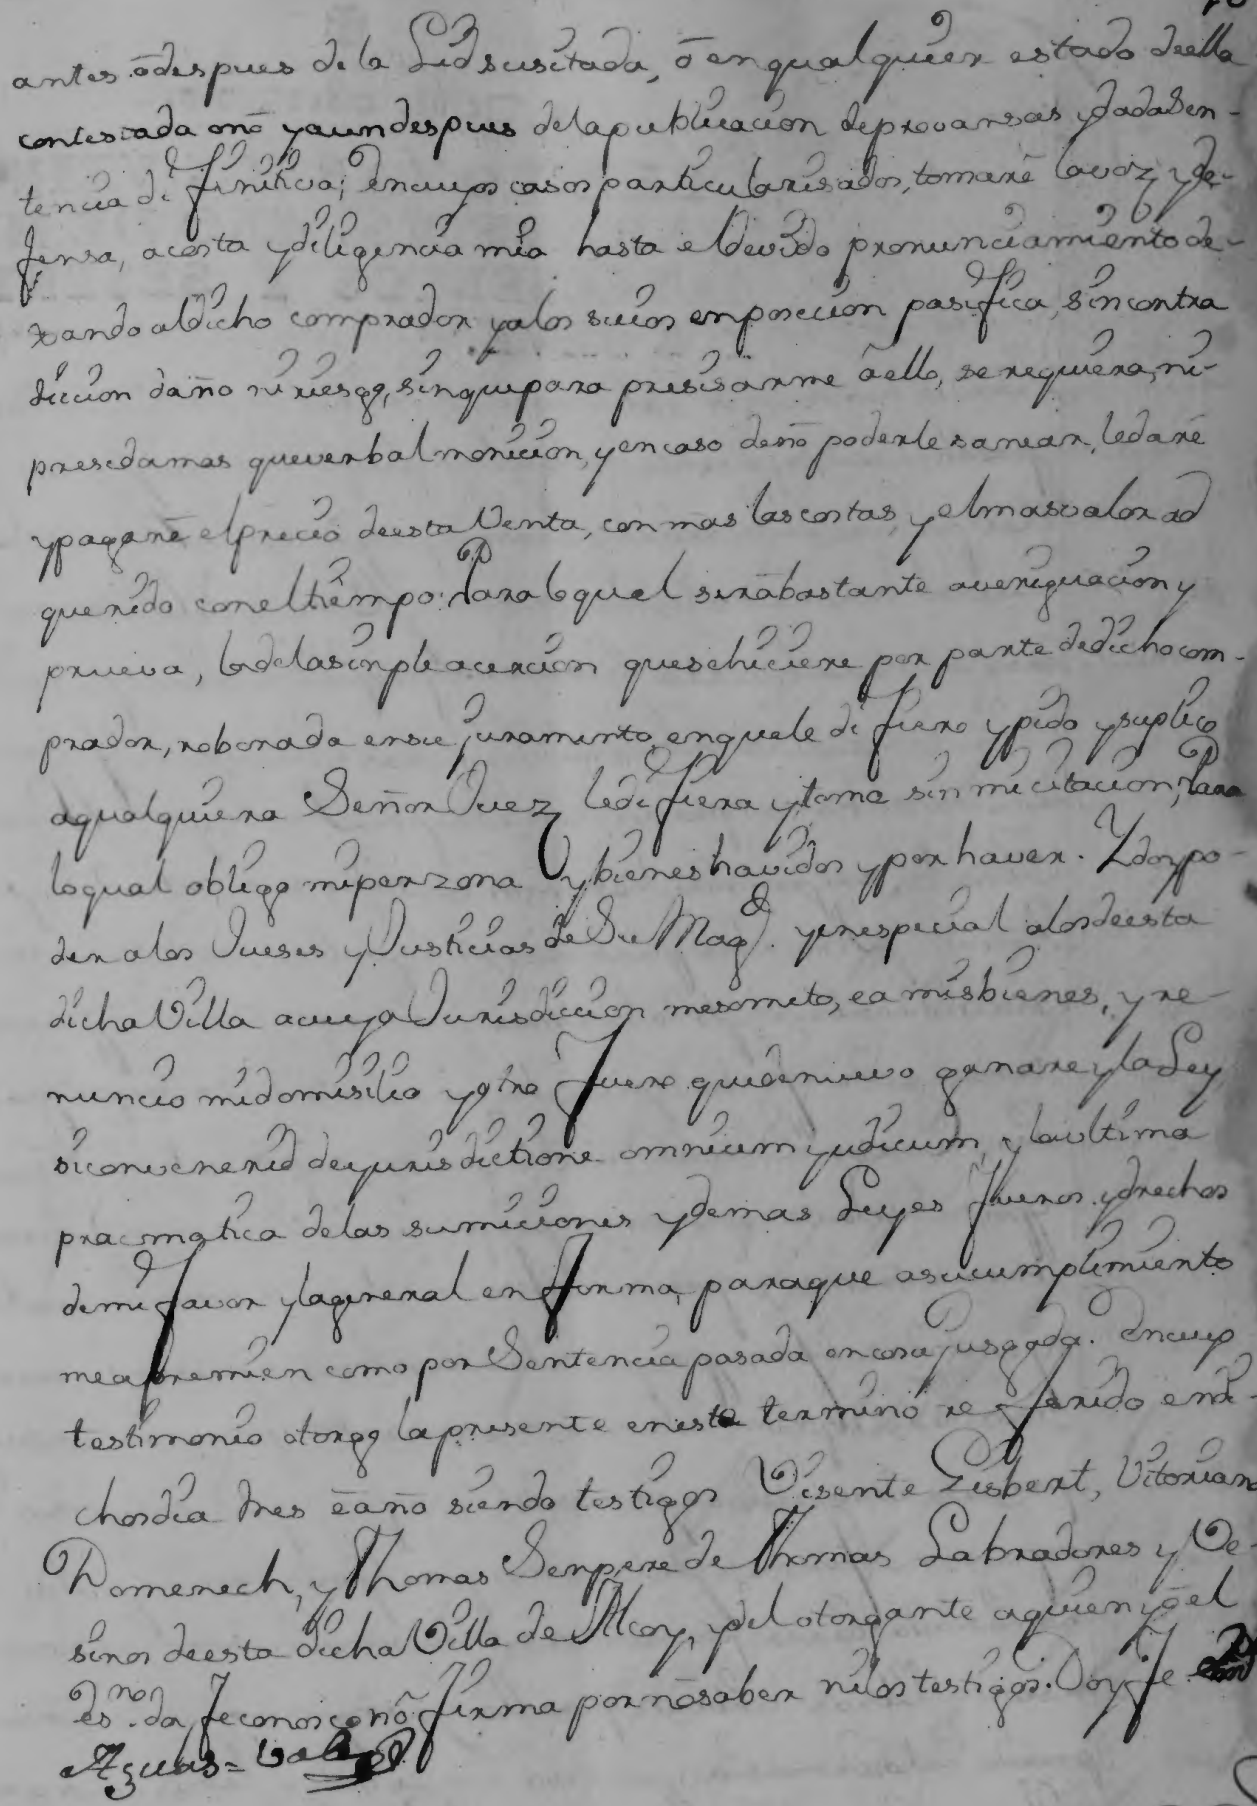 antes ó despues de la Lid suscitada, ó en qualquier estado de ella
contestada o nó y aun despues de la publicacion de provansas y dada Sen-
tencia difinitiva; En cuyos casos particularisados, tomaré la voz y de-
fensa, a costa y diligencia mia hasta el devido pronunciamiento de-
xando al dicho comprador y a los suios en pocecion pasifica, sin contra
diccion daño ni riesgo, sin que para presisarme á ello, se requiera, ni
preseda mas que verbal monicion, y en caso de nó poderle sanear, le daré
y pagaré el precio de esta Venta, con mas las costas, y el mas valor ad
querido con el tiempo: Para lo qual será bastante averiguacion y
prueva, la de la simple acercion que se hiciere por parte de dicho com-
prador, roborada en su juramento en que le difiero y pido y suplico
a qualquiera Señor Juez le difiera y tome sin mi citacion; Para
lo qual obligo mi perzona y bienes havidos y por haver. Y doy po-
der a los Jueses y Justicias de Su Magd. y en especial a los de esta
dicha Villa a cuya Jurisdiccion me someto, e a mis bienes, y re-
nuncio mi domisilio y otro fuero que de nuevo ganare y la Ley
si convenerid de yurisdictione omnium yudicum, y la ultima
pracmatica de las sumiciones y demas Leyes fueros y drechos
de mi favor y la general en forma, para que a su cumplimiento
me apremien como por Sentencia pasada en cosa jusgada. En cuyo
testimonio otorgo la presente en este termino referido en di-
chos dia mes é año siendo testigos Visente Gisbert, Vitoriano
Domenech, y Thomas Senpere de Thomas Labradores y Ve-
sinos de esta dicha Villa de Alcoy, y del otorgante a quien yo el
esno. doy fe conosco nó firma por nó saber ni los testigos. Doy fe
Aguas = Val